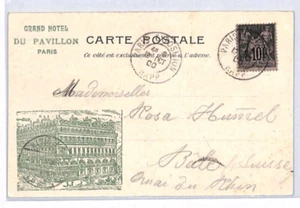 GRAND HOTEL
DU PAVILLON
PARIS
CARTE POSTALE
Ce côté est exclusivement réservé à l'adresse.
PARIS
10
Mademoiselles
Rosa Hummel
Bâle, Suisse
Quai du Rhin